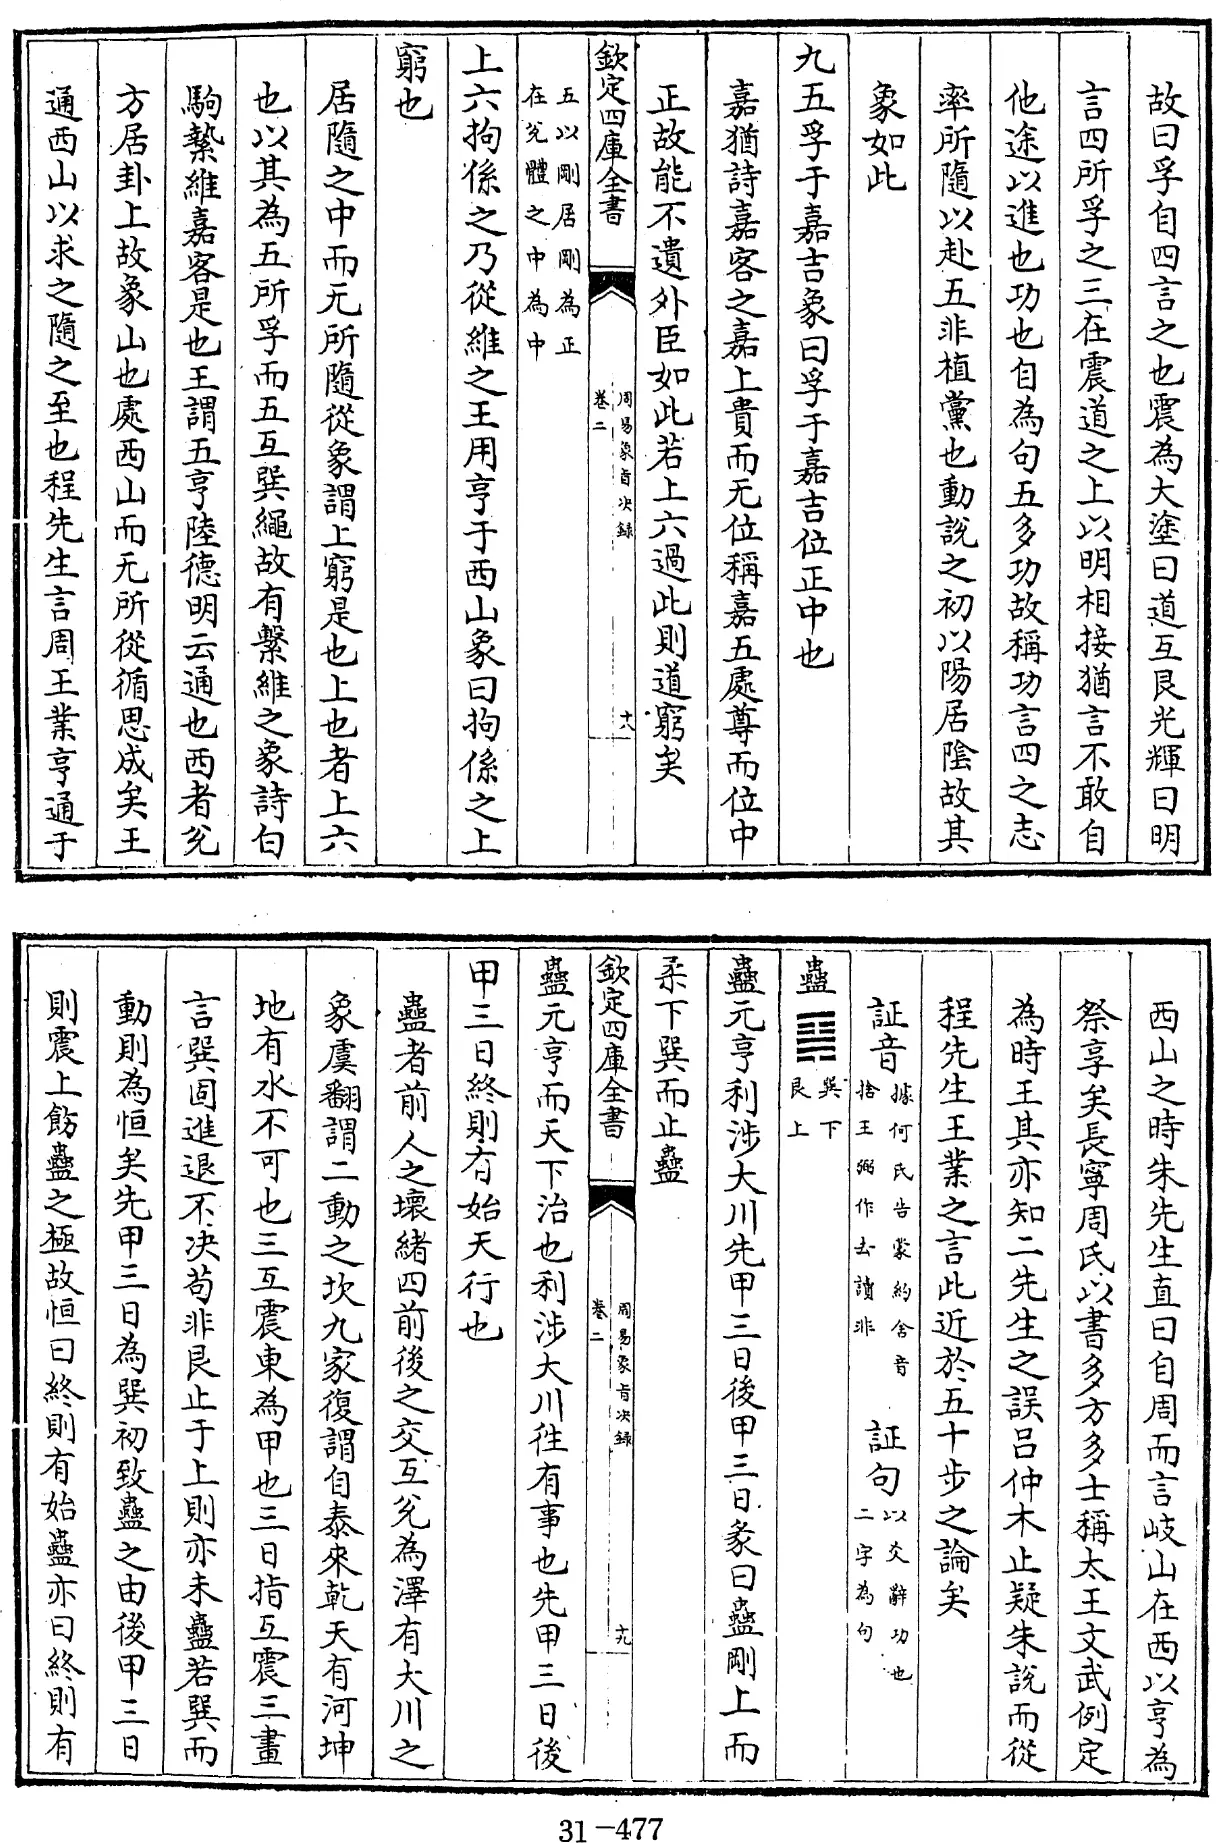 故曰孚自四言之也震為大塗曰道互艮光輝曰明
言四所孚之三在震道之上以明相接猶言不敢自
他途以進也功也自為句五多功故稱功言四之志
率所隨以赴五非植黨也動說之初以陽居陰故其
象如此
九五孚于嘉吉象曰孚于嘉吉位正中也
嘉猶詩嘉客之嘉上貴而无位稱嘉五處尊而位中
正故能不遺外臣如此若上六過此則道窮矣
欽定四庫全書
周易象旨決録
卷二
十八
五以剛居剛為正
在兊體之中為中
上六拘係之乃從維之王用亨于西山象曰拘係之上
窮也
居隨之中而无所隨從象謂上窮是也上也者上六
也以其為五所孚而五互巽繩故有繫維之象詩白
駒縶維嘉客是也王謂五亨陸德明云通也西者兊
方居卦上故象山也處西山而无所從循思成矣王
通西山以求之隨之至也程先生言周王業亨通于
西山之時朱先生直曰自周而言岐山在西以亨為
祭享矣長寧周氏以書多方多士稱太王文武例定
為時王其亦知二先生之誤吕仲木止疑朱說而從
程先生王業之言此近於五十步之論矣
証音
據何氏告蒙約舍音
捨王弼作去讀非
証句
以爻辭功也
二字為句
蠱䷑
巽下
艮上
蠱元亨利涉大川先甲三日後甲三日彖曰蠱剛上而
柔下巽而止蠱
欽定四庫全書
周易象旨決録
卷二
十九
蠱元亨而天下治也利涉大川徃有事也先甲三日後
甲三日終則有始天行也
蠱者前人之壞緒四前後之交互兊為澤有大川之
象虞翻謂二動之坎九家復謂自泰來乾天有河坤
地有水不可也三互震東為甲也三日指互震三畫
言巽固進退不決苟非艮止于上則亦未蠱若巽而
動則為恒矣先甲三日為巽初致蠱之由後甲三日
則震上飭蠱之極故恒曰終則有始蠱亦曰終則有
31-477